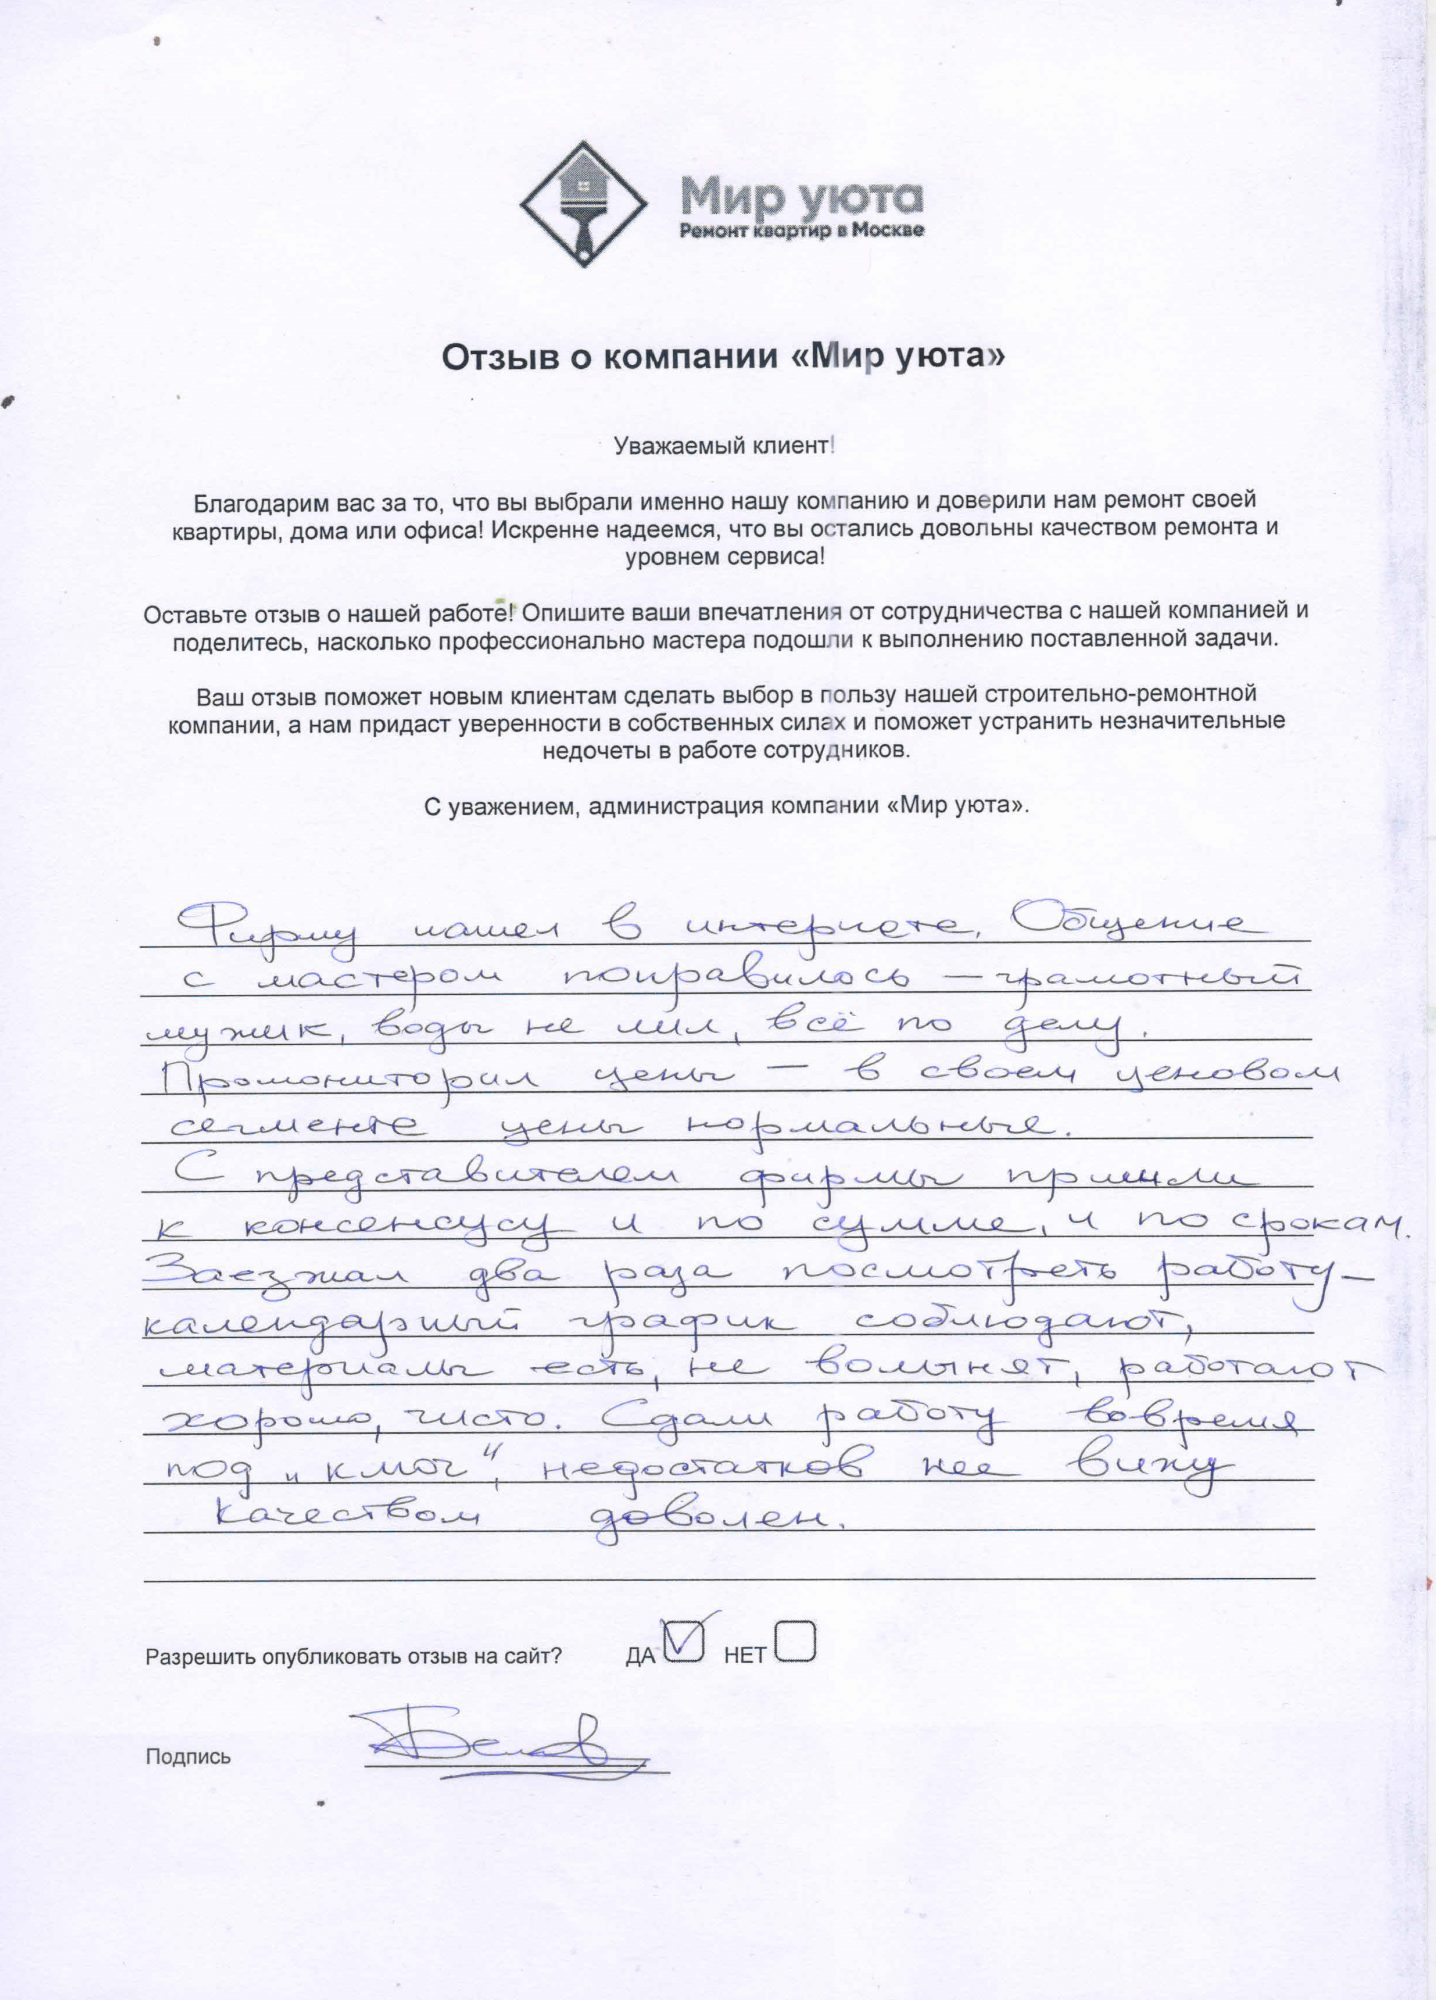 Мир уюта
Ремонт квартир в Москве
Отзыв о компании «Мир уюта»
Уважаемый клиент!
Благодарим вас за то, что вы выбрали именно нашу компанию и доверили нам ремонт своей
квартиры, дома или офиса! Искренне надеемся, что вы остались довольны качеством ремонта и
уровнем сервиса!
Оставьте отзыв о нашей работе! Опишите ваши впечатления от сотрудничества с нашей компанией и
поделитесь, насколько профессионально мастера подошли к выполнению поставленной задачи.
Ваш отзыв поможет новым клиентам сделать выбор в пользу нашей строительно-ремонтной
компании, а нам придаст уверенности в собственных силах и поможет устранить незначительные
недочеты в работе сотрудников.
С уважением, администрация компании «Мир уюта».
Фирму нашел в интернете. Общение
с мастером понравилось – грамотный
мужик, воды не лил, всё по делу.
Промониторил цены – в своем ценовом
сегменте цены нормальные.
С представителем фирмы пришли
к консенсусу и по сумме, и по срокам.
Заезжал два раза посмотреть работу –
календарный график соблюдают,
материалы есть, не волынят, работают
хорошо, чисто. Сдали работу вовремя
под „ключ“, недостатков не вижу
качеством доволен.
Разрешить опубликовать отзыв на сайт? ДА НЕТ
Подпись Белов